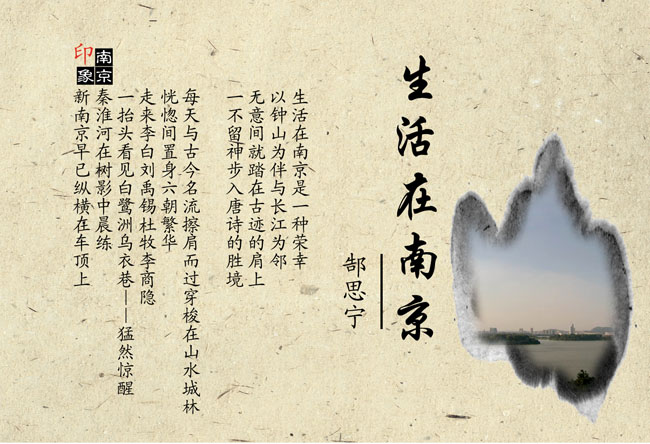 生活在南京
郜思宁
生活在南京是一种荣幸
以钟山为伴与长江为邻
无意间就踏在古迹的肩上
一不留神步入唐诗的胜境
每天与古今名流擦肩而过穿梭在山水城林
恍惚间置身六朝繁华
走来李白刘禹锡杜牧李商隐
一抬头看见白鹭洲乌衣巷——猛然惊醒
秦淮河在树影中晨练
新南京早已纵横在车顶上
南京
印象